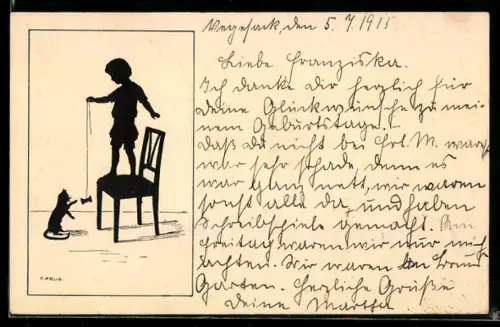 Vegesack, den 5. 7. 1915
Liebe Franziska.
Ich danke dir herzlich für
deine Glückwünsche zu mei-
nem Geburtstage.
Daß du nicht bei Frl. M. warst
war sehr schade, denn es
war ganz nett, wir waren
sonst alle da, und haben
Schreibspiele gemacht. Am
Freitag waren wir nur
Wir waren
Garten. Herzliche Grüße
Deine Martha.